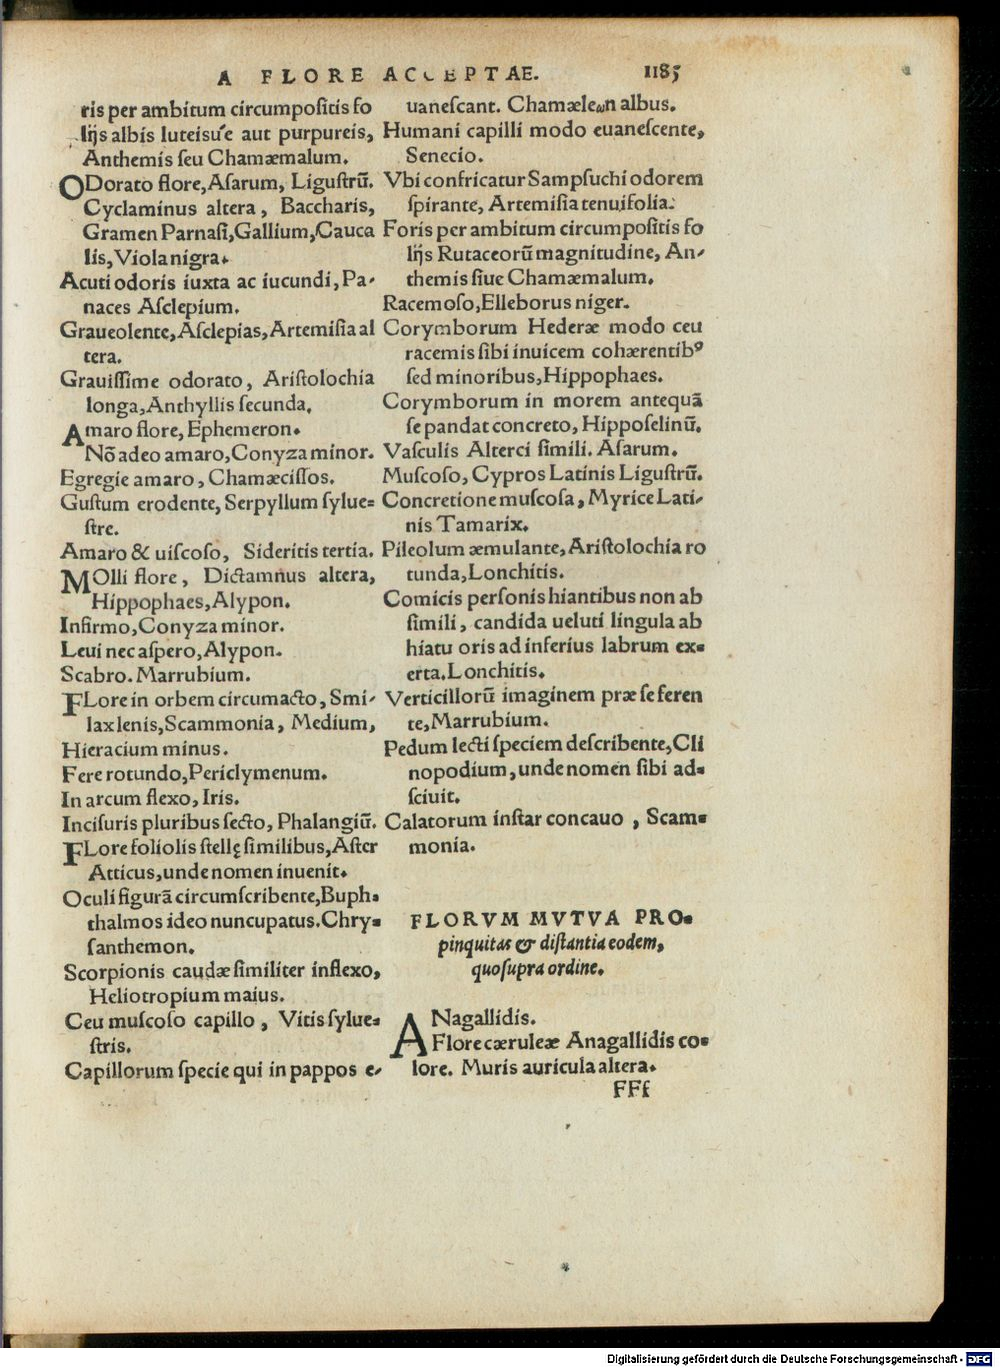 A FLORE ACCEPTAE. 1185
ris per ambitum circumpositis fo
lijs albis luteisue aut purpureis,
Anthemis seu Chamæmalum.
ODorato flore, Asarum, Ligustrũ.
Cyclaminus altera, Baccharis,
Gramen Parnasi, Gallium, Cauca
lis, Viola nigra.
Acuti odoris iuxta ac iucundi, Pa-
naces Asclepium.
Graueolente, Asclepias, Artemisia al
tera.
Grauissime odorato, Aristolochia
longa, Anthyllis secunda.
Amaro flore, Ephemeron.
Nõ adeo amaro, Conyza minor.
Egregie amaro, Chamæcissos.
Gustum erodente, Serpyllum sylue=
stre.
Amaro & uiscoso, Sideritis tertia.
MOlli flore, Dictamnus altera,
Hippophaes, Alypon.
Infirmo, Conyza minor.
Leui nec aspero, Alypon.
Scabro. Marrubium.
FLore in orbem circumacto, Smi-
lax lenis, Scammonia, Medium,
Hieracium minus.
Fere rotundo, Periclymenum.
In arcum flexo, Iris.
Incisuris pluribus secto, Phalangiũ.
FLore foliolis stellę similibus, Aster
Atticus, unde nomen inuenit.
Oculi figurã circumscribente, Buph=
thalmos ideo nuncupatus. Chry=
santhemon.
Scorpionis caudæ similiter inflexo,
Heliotropium maius.
Ceu muscoso capillo, Vitis sylue=
stris.
Capillorum specie qui in pappos e-
uanescant. Chamæleωn albus.
Humani capilli modo euanescente,
Senecio.
Vbi confricatur Sampsuchi odorem
spirante, Artemisia tenuifolia.
Foris per ambitum circumpositis fo
lijs Rutaceorũ magnitudine, An-
themis siue Chamæmalum.
Racemoso, Elleborus niger.
Corymborum Hederæ modo ceu
racemis sibi inuicem cohærentibꝰ
sed minoribus, Hippophaes.
Corymborum in morem antequã
se pandat concreto, Hipposelinũ.
Vasculis Alterci simili. Asarum.
Muscoso, Cypros Latinis Ligustrũ.
Concretione muscosa, Myrice Lati-
nis Tamarix.
Pileolum æmulante, Aristolochia ro
tunda, Lonchitis.
Comicis personis hiantibus non ab
simili, candida ueluti lingula ab
hiatu oris ad inferius labrum ex=
erta. Lonchitis.
Verticillorũ imaginem præ se feren
te, Marrubium.
Pedum lecti speciem describente, Cli
nopodium, unde nomen sibi ad=
sciuit.
Calatorum instar concauo, Scam=
monia.
FLORVM MVTVA PRO=
pinquitas & distantia eodem,
quo supra ordine.
ANagallidis.
Flore cæruleæ Anagallidis co=
lore. Muris auricula altera.
FFf
Digitalisierung gefördert durch die Deutsche Forschungsgemeinschaft - DFG